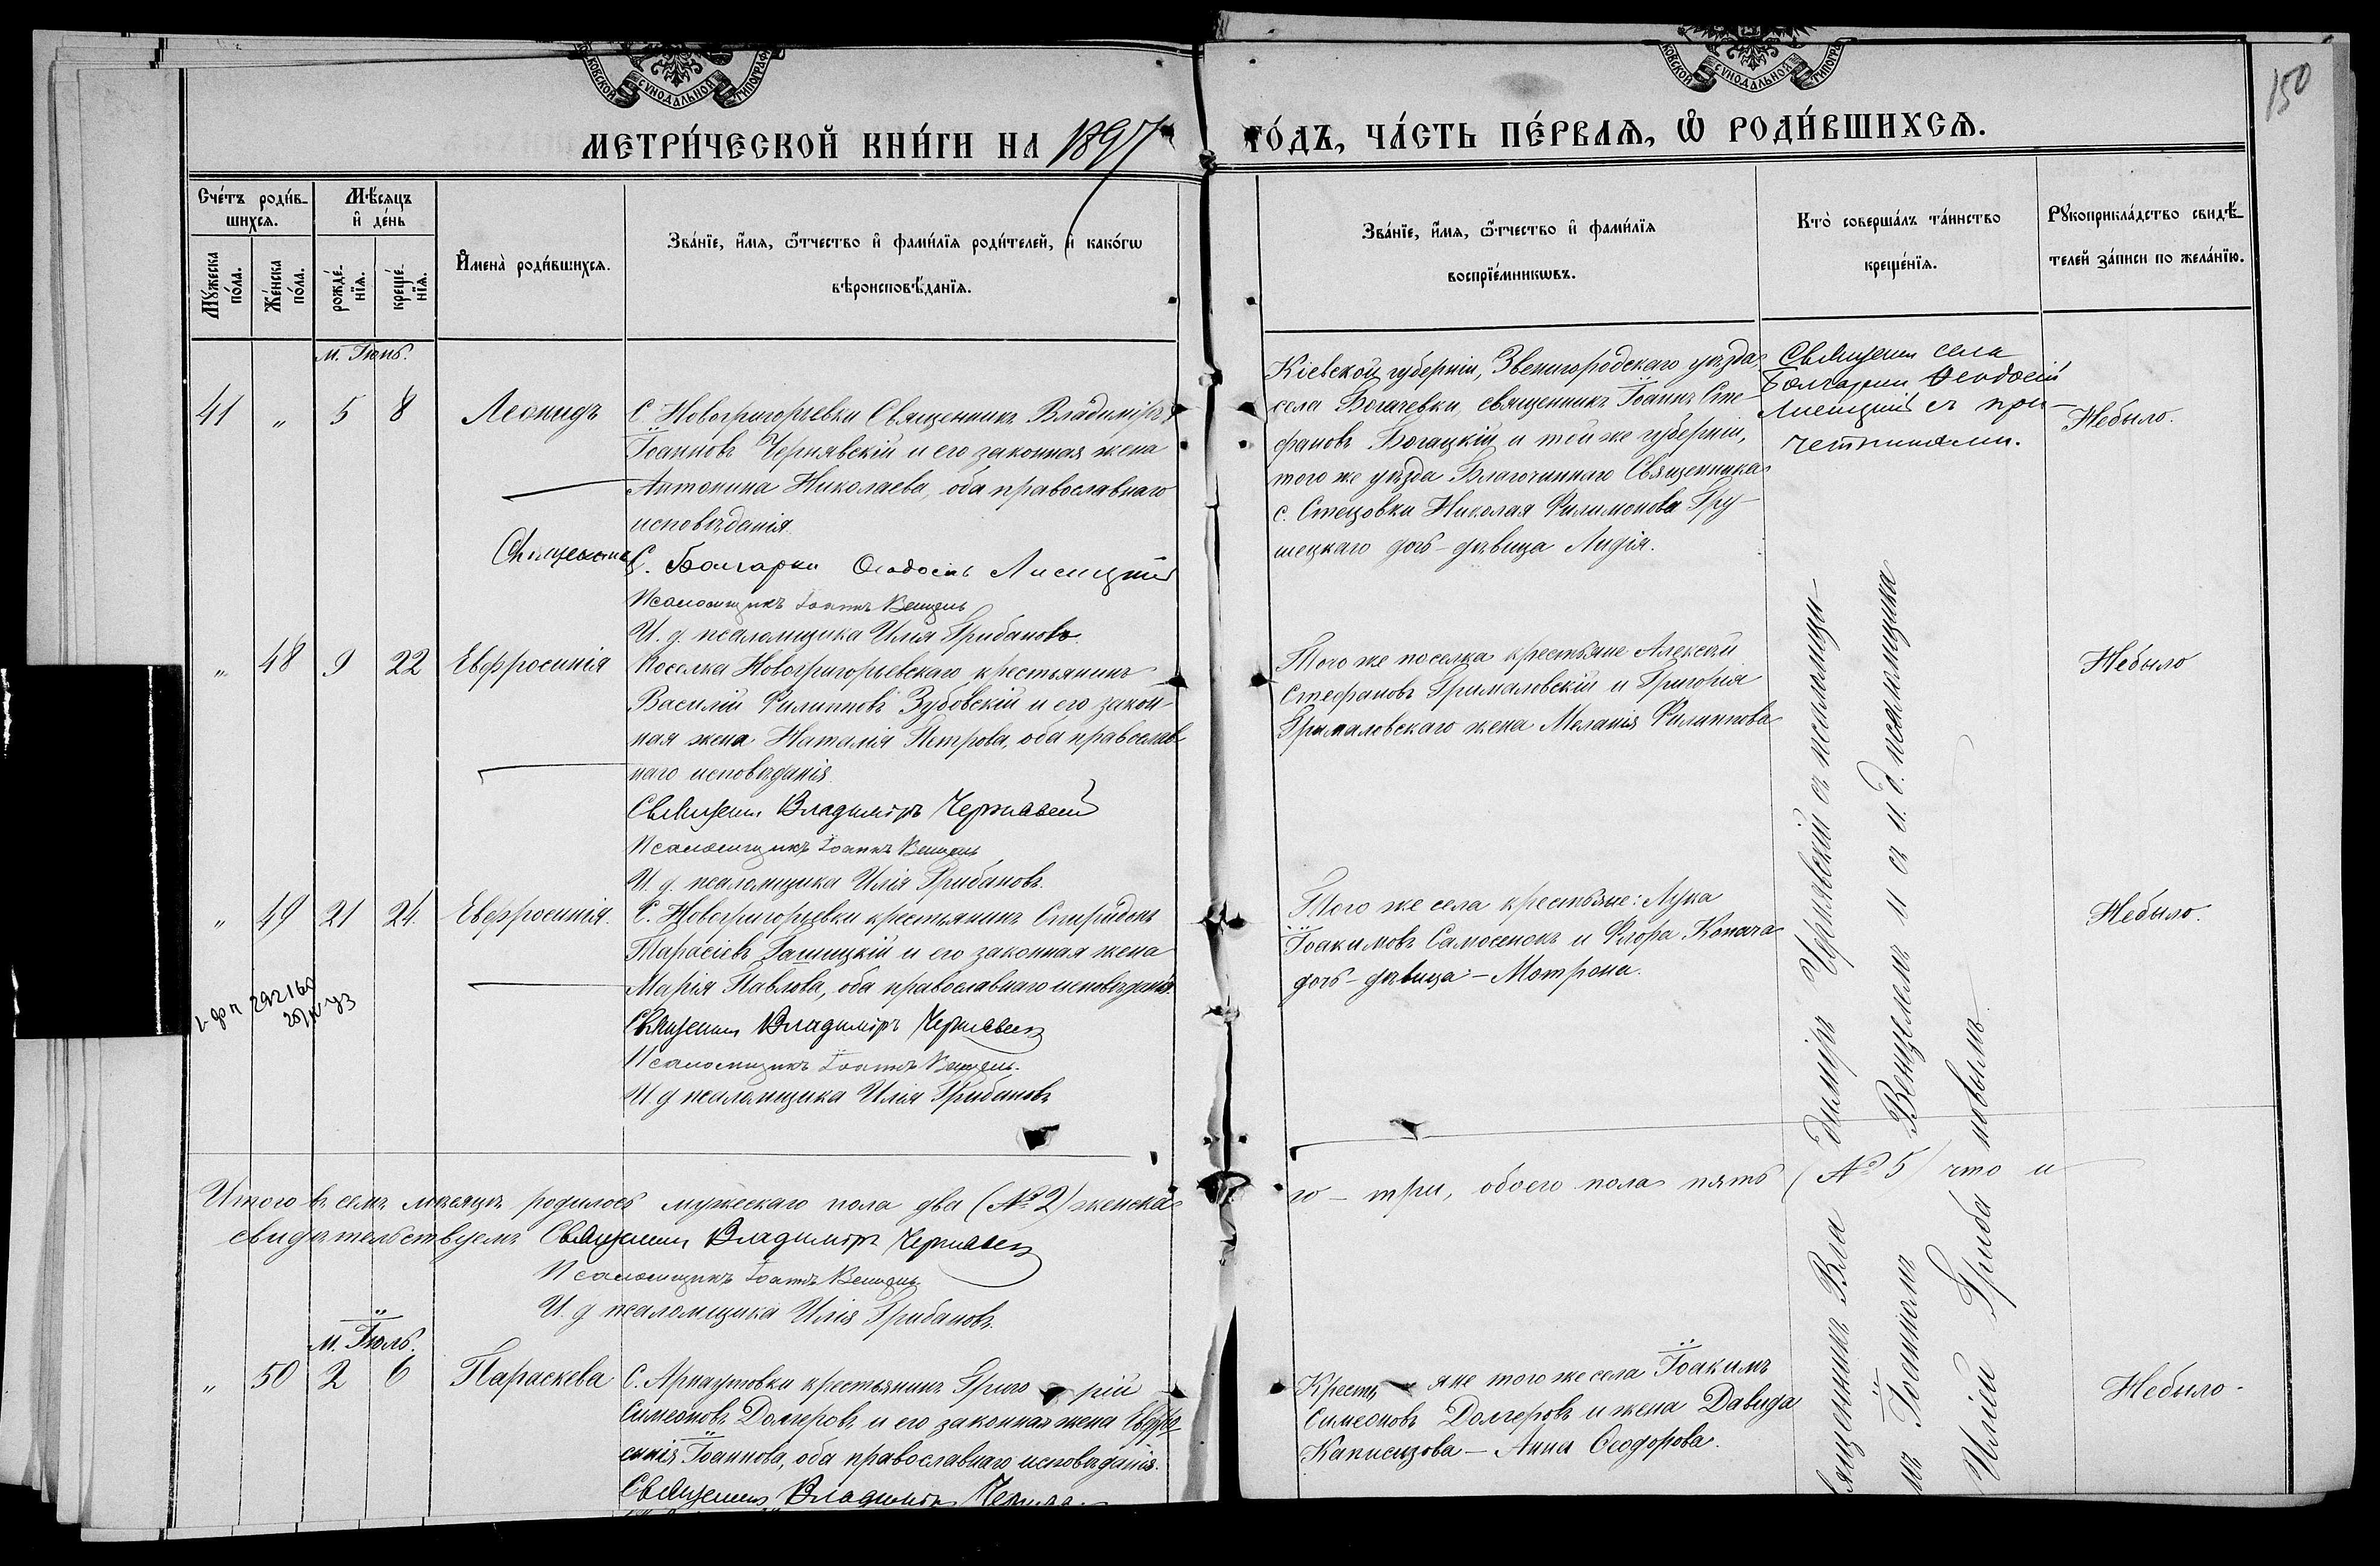 МЕТРИ́ЧЕСКОЙ КНИ́ГИ НА 1897 ГО́ДЪ, ЧА́СТЬ ПЕ́РВАѦ, Ѽ РОДИ́ВШИХСѦ.
150
Сче́тъ роди́в-
шихся.
Мѣ́сяцъ
и҆ де́нь
Му́жеска
по́ла.
Же́нска
по́ла.
рожде́-
нїя.
креще́-
нїя.
И҆мена̀ роди́вшихся.
Зва́нїе, и҆́мя, ѻ҆́тчество и҆ фами́лїя роди́телей, и҆ како́гѡ
вѣроисповѣ́данїя.
Зва́нїе, и҆́мя, ѻ҆́тчество и҆ фами́лїя
воспрїе́мникѡвъ.
Кто̀ соверша́лъ та́инство
креще́нїя.
Рукоприкла́дство свидѣ́-
телей за́писи по жела́нїю.
м. Іюнь.
41 " 5 8 Леонидъ
С. Новогригорьевки Священникъ Владиміръ
Іоанновъ Чернявскій и его законная жена
Антонина Николаева, оба православнаго
исповѣданія.
Священникъ С. Болгарки Ѳеодосій Лисицкій
Псаломщикъ Іоаннъ Венцель
И. д. псаломщика Илія Грибановъ.
Кіевской губерніи, Звенигородскаго уѣзда,
села Богачевки, священникъ Іоаннъ Сте-
фановъ Богацкій и той же губерніи,
того же уѣзда Благочиннаго Священника
с. Стецовки Николая Филимонова Гру-
шецкаго дочь-дѣвица Лидія.
Священникъ села
Болгарки Ѳеодосій
Лисицкій съ при-
четниками.
Небыло.
" 48 9 22 Евфросинія
Поселка Новогригорьевскаго крестьянинъ
Василій Филипповъ Зубовскій и его закон-
ная жена Наталія Петрова, оба православ-
наго исповѣданія.
Священникъ Владиміръ Чернявскій
Псаломщикъ Іоаннъ Венцель
И. д. псаломщика Илія Грибановъ.
Того же поселка крестьяне Алексѣй
Стефановъ Грималовскій и Григорія
Грималовскаго жена Меланія Филиппова
Небыло
" 49 21 24. Евфросинія.
С. Новогригорьевки крестьянинъ Спиридонъ
Тарасіевъ Гашицкій и его законная жена
Марія Павлова, оба православнаго исповѣданія.
Священникъ Владиміръ Чернявскій
Псаломщикъ Іоаннъ Венцель.
И. д. псаломщика Илія Грибановъ
Того же села крестьяне: Лука
Іоакимовъ Самосенокъ и Флора Копача
дочь-дѣвица - Мотрона.
Небыло.
Итого въ семъ мѣсяцѣ родилось мужескаго пола два (№ 2) женска-
го - три, обоего пола пять (№ 5) что и
свидѣтельствуемъ Священникъ Владиміръ Чернявскій
Псаломщикъ Іоаннъ Венцель.
И. д. псаломщика Илія Грибановъ.
м. Іюль.
" 50 2 6 Параскева
С. Арнаутовки крестьянинъ Григорій
Симеоновъ Долгеровъ и его законная жена Евфро-
синія Іоаннова, оба православнаго исповѣданія.
Священникъ Владиміръ
Крестьяне того же села Іоакимъ
Симеоновъ Долгеровъ и жена Давида
Анна Ѳеодорова.
Небыло.
Священникъ Владиміръ Чернявскій съ псаломщи-
мъ Іоанномъ Венцелемъ и съ и. д. псаломщика
Иліей Грибановымъ.